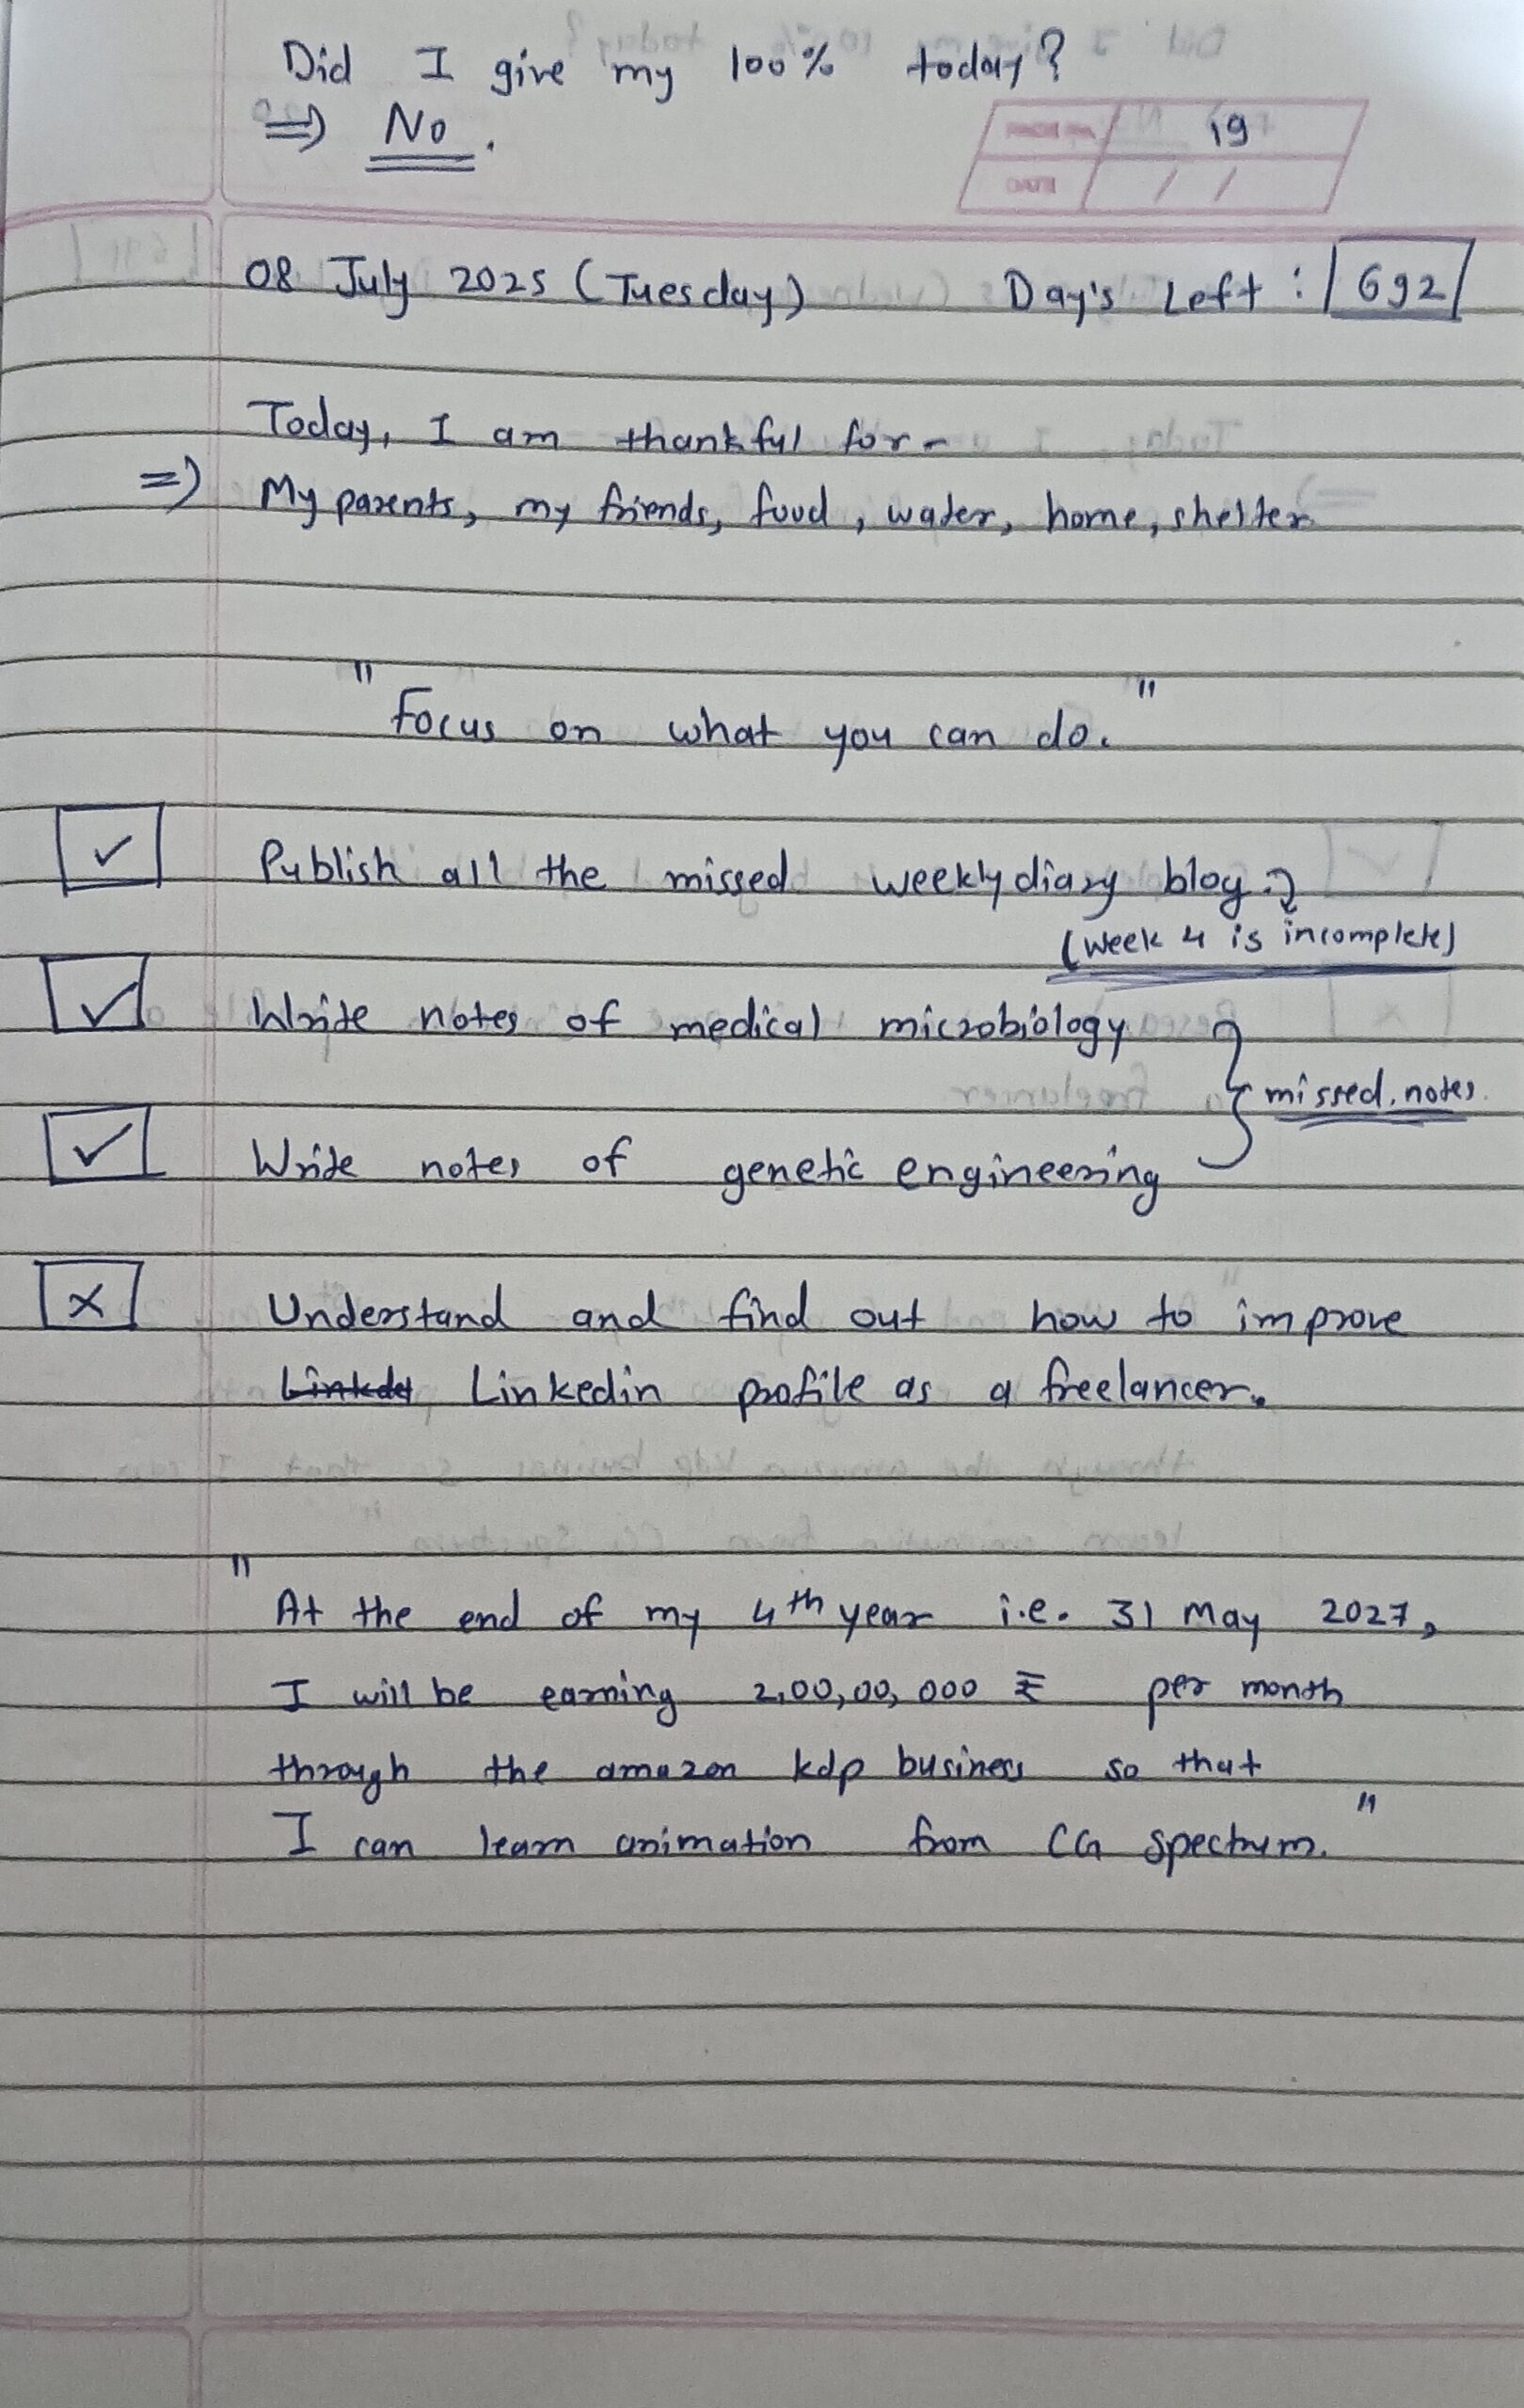 Did I give my 100% today?
⇒ No.
19
08 July 2025 (Tuesday) Day's Left : 692
Today, I am thankful for -
⇒ My parents, my friends, food, water, home, shelter
"Focus on what you can do."
✓ Publish all the missed weekly diary blog.
(week 4 is incomplete)
✓ Write notes of medical microbiology
missed notes
✓ Write notes of genetic engineering
x Understand and find out how to improve
Linkdi Linkedin profile as a freelancer.
"At the end of my 4th year i.e. 31 May 2027,
I will be earning 2,00,00,000 ₹ per month
through the amazon kdp business so that
I can learn animation from CG Spectrum."